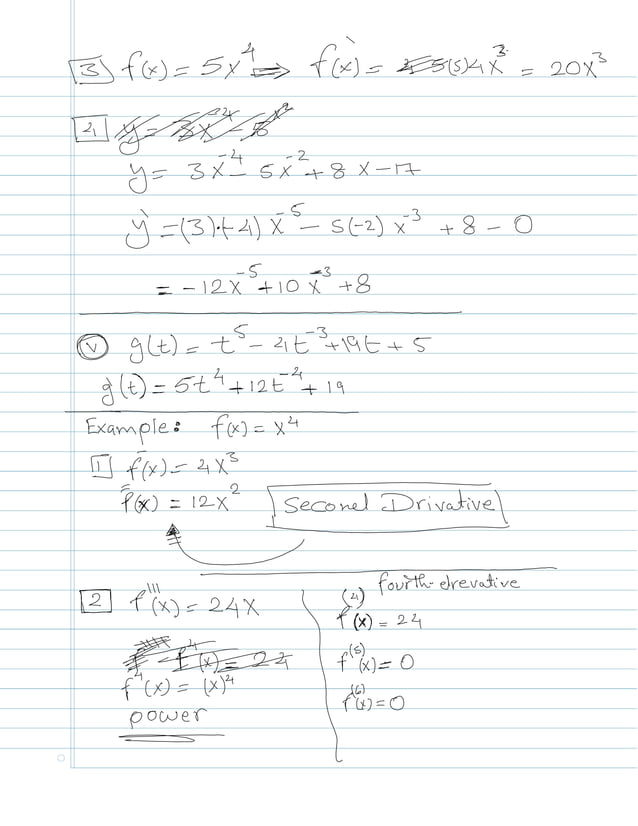 3 f(x) = 5x⁴ ⟹ f`(x) = (5)4x³ = 20x³
4
y = 3x⁻⁴ - 5x⁻² + 8x - 17
y` = (3)·(-4) x⁻⁵ - 5(-2) x⁻³ + 8 - 0
= -12x⁻⁵ + 10x⁻³ + 8
V g(t) = t⁵ - 4t⁻³ + 19t + 5
g`(t) = 5t⁴ + 12t⁻⁴ + 19
Example: f(x) = x⁴
1 f'(x) = 4x³
f''(x) = 12x²
Second Drivative
2 f'''(x) = 24x
f⁴(x) = (x)⁴
power
fourth drevative
f⁽⁴⁾(x) = 24
f⁽⁵⁾(x) = 0
f⁽⁶⁾(x) = 0